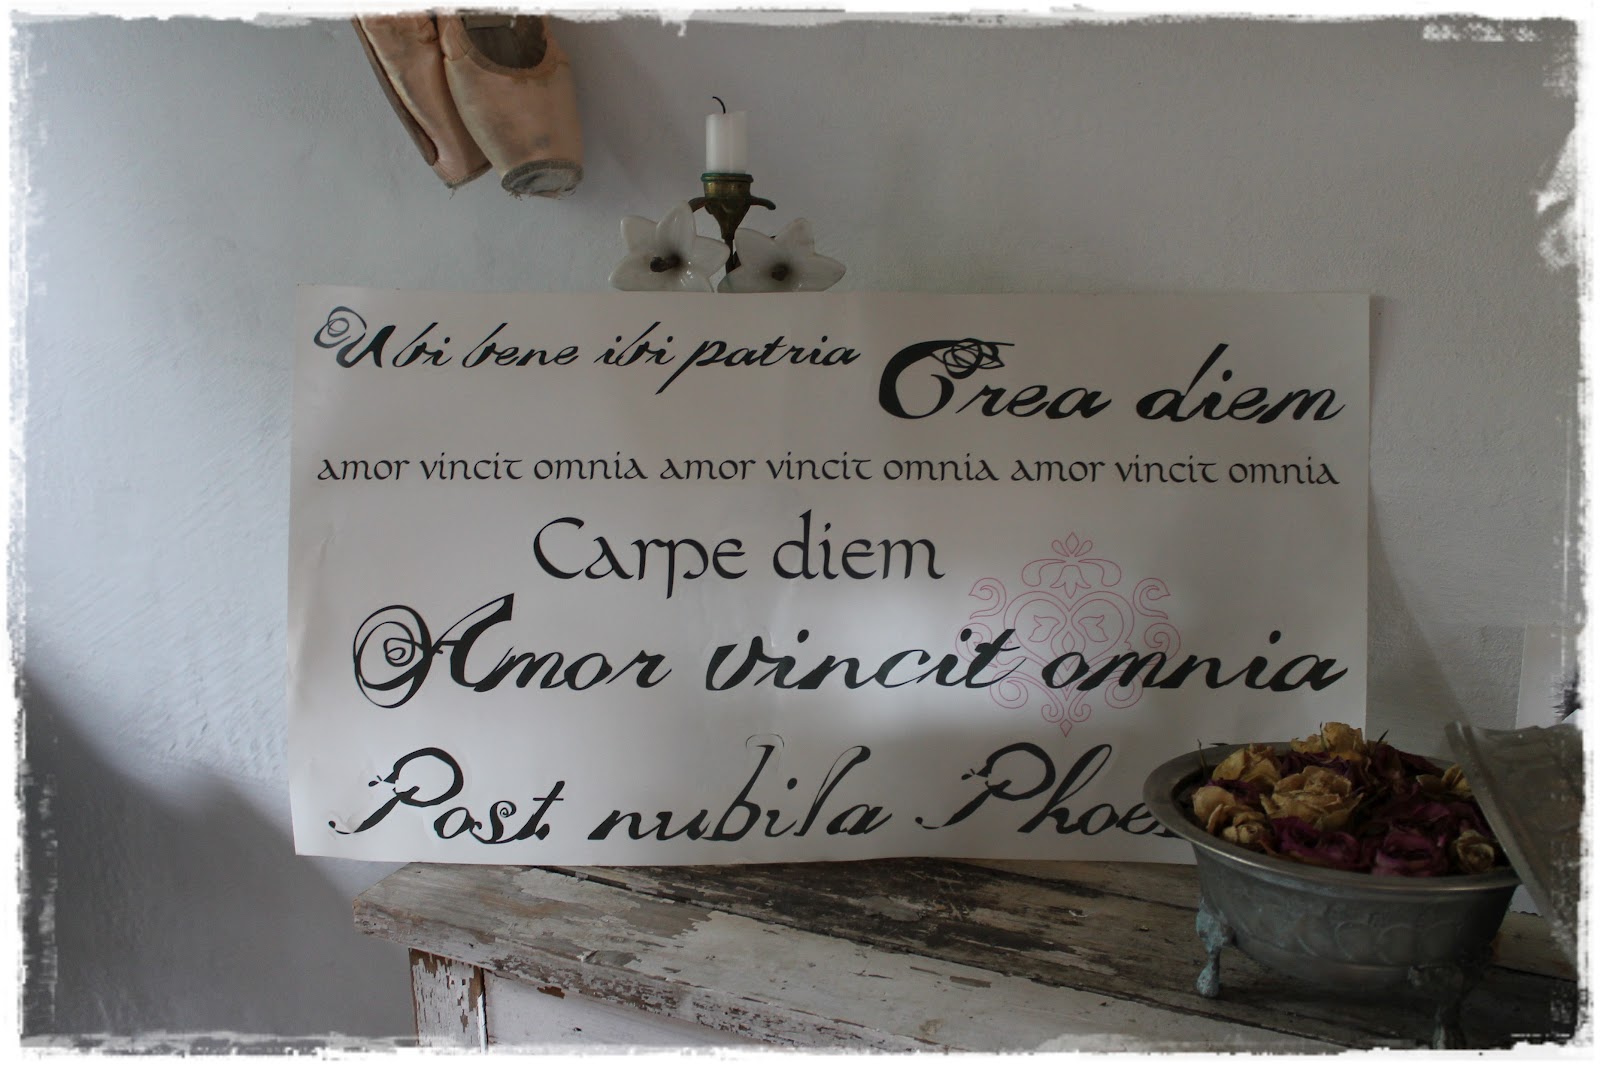 Ubi bene ibi patria
Crea diem
amor vincit omnia amor vincit omnia amor vincit omnia
Carpe diem
Amor vincit omnia
Post nubila